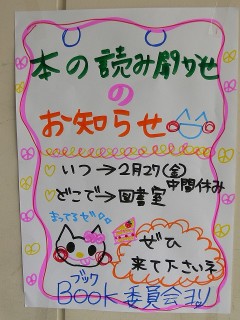 本の読み聞かせ
の
お知らせ
いつ→2月27(金)
中間休み
どこで→図書室
まってるゼ
ぜひ
来て下さいネ
ブック
Book委員会ヨリ